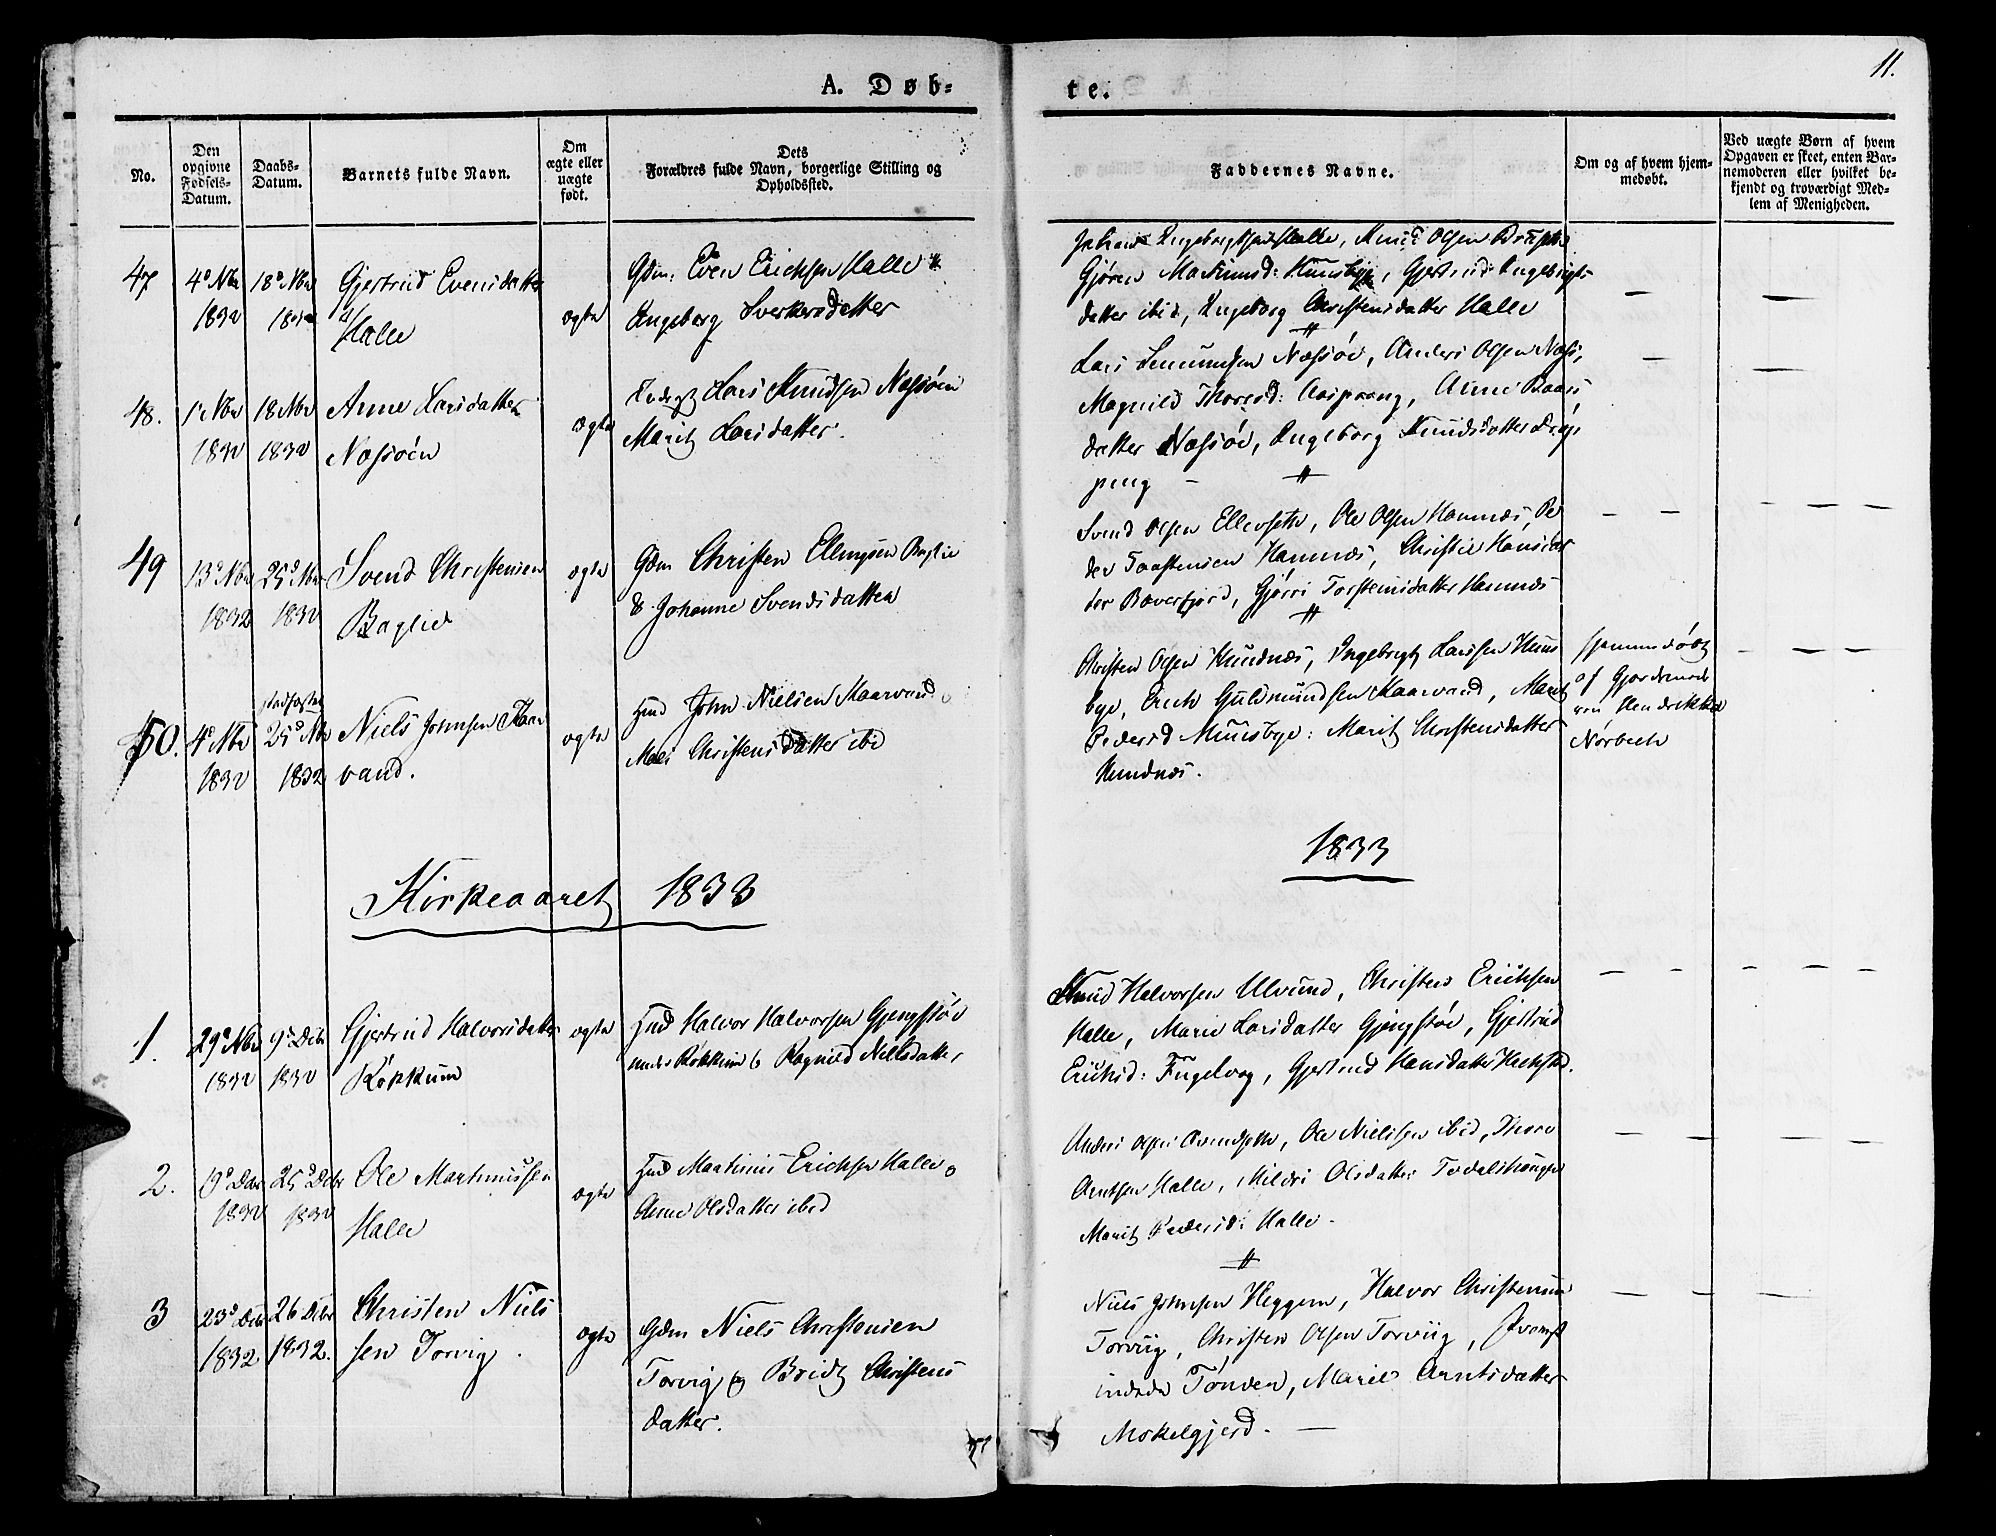 11.
A. Døb-
te.
No.
Den opgivne Fødsels-Datum.
Daabs-Datum.
Barnets fulde Navn.
Om ægte eller uægte født.
Dets Forældres fulde Navn, borgerlige Stilling og Opholdssted.
Faddernes Navne.
Om og af hvem hjem-medøbt.
Ved uægte Børn af hvem Opgaven er skeet, enten Bar-nemoderen eller hvilket be-kjendt og troværdigt Med-lem af Menigheden.
47
4de Nbr 1832
18de Nbr 1832
Gjertrud Evensdatter
Halle
ægte
Gdm. Even Erichsen Halle &
Ingeborg Sverkersdatter
Ingebrigtsen Halle, Knud Olsen
Gjøren, Gjertrud Ingebrigts
datter ibid, Ingeborg Christensdatter Halle
48.
1 Nbr 1832
18 Nbr 1832
Anne Larsdatter
Næssøen
ægte
Lars Knudsen Næssøen
Marit Larsdatter.
Lars Næssøe, Anders Olsen Næss,
Magnild Thoresd:, Anne Baars
datter Næssøe, Ingeborg Knudsdatter Drøp
ping
49
13de Nbr 1832
25de Nbr 1832
Svend Christensen
Baglie
ægte
Gdm Christen Ellingsen Baglie
& Johanne Svendsdatter
Svend Olsen Ellevseth, Ole Olsen Hamnæs, Pe
der Taastensen Hamnæs, Christie Hansdat
ter Bæverfjord, Gjørri Torstensdatter Hamnæs
50.
4de Nbr 1832
stadfæstet
25de Nbr 1832
Niels Johnsen Kaar
vand.
ægte
Hmd John Nielsen Kaarvand &
Mari Christensdatter ibid
Christen Olsen Hamnæs, Ingebrigt Larssen Muus
bye, Erich Guldmundsen Kaarvand, Marit
Pedersd Muusbye: Marit Christensdatter
Hamnæs.
Hjemmedøbt
af Gjordemode
ren Hendrikke
Norbech
Kirkeaaret 1833
1833
1.
29de Nbr 1832
9de Debr 1832
Gjertrud Halvorsdatter
Røkkum
ægte
Hmd Halvor Halvorsen Gjengstøe
under Røkkum & Ragnild Nielsdatter
Knud Halvorsen Ulvund, Christen Erichsen
Halle, Marie Larsdatter Gjengstøe, Gjertrud
Erichsd: Fugelvog, Gjertrud Hansdatter
2.
25de Debr 1832
Ole Martinussen
Halle
ægte
Hmd Martinus Erichsen Halle &
Anne Olsdatter ibid
Anders Olsen, Ole Nielsen ibid, Thore
Arntsen Halle, Mildri Olsdatter Todalshougen
Marit Pedersd: Halle.
3
23de Debr 1832
26 Debr 1832.
Christen Niels
sen Torvig.
ægte
Gdm Niels Christensen
Torvig & Bridt Christens
datter.
Niels Johnsen Heggem, Halvor Christensen
Torviig, Christen Olsen Torviig,
Tønden, Marie Arntsdatter
Mokelgjerd.